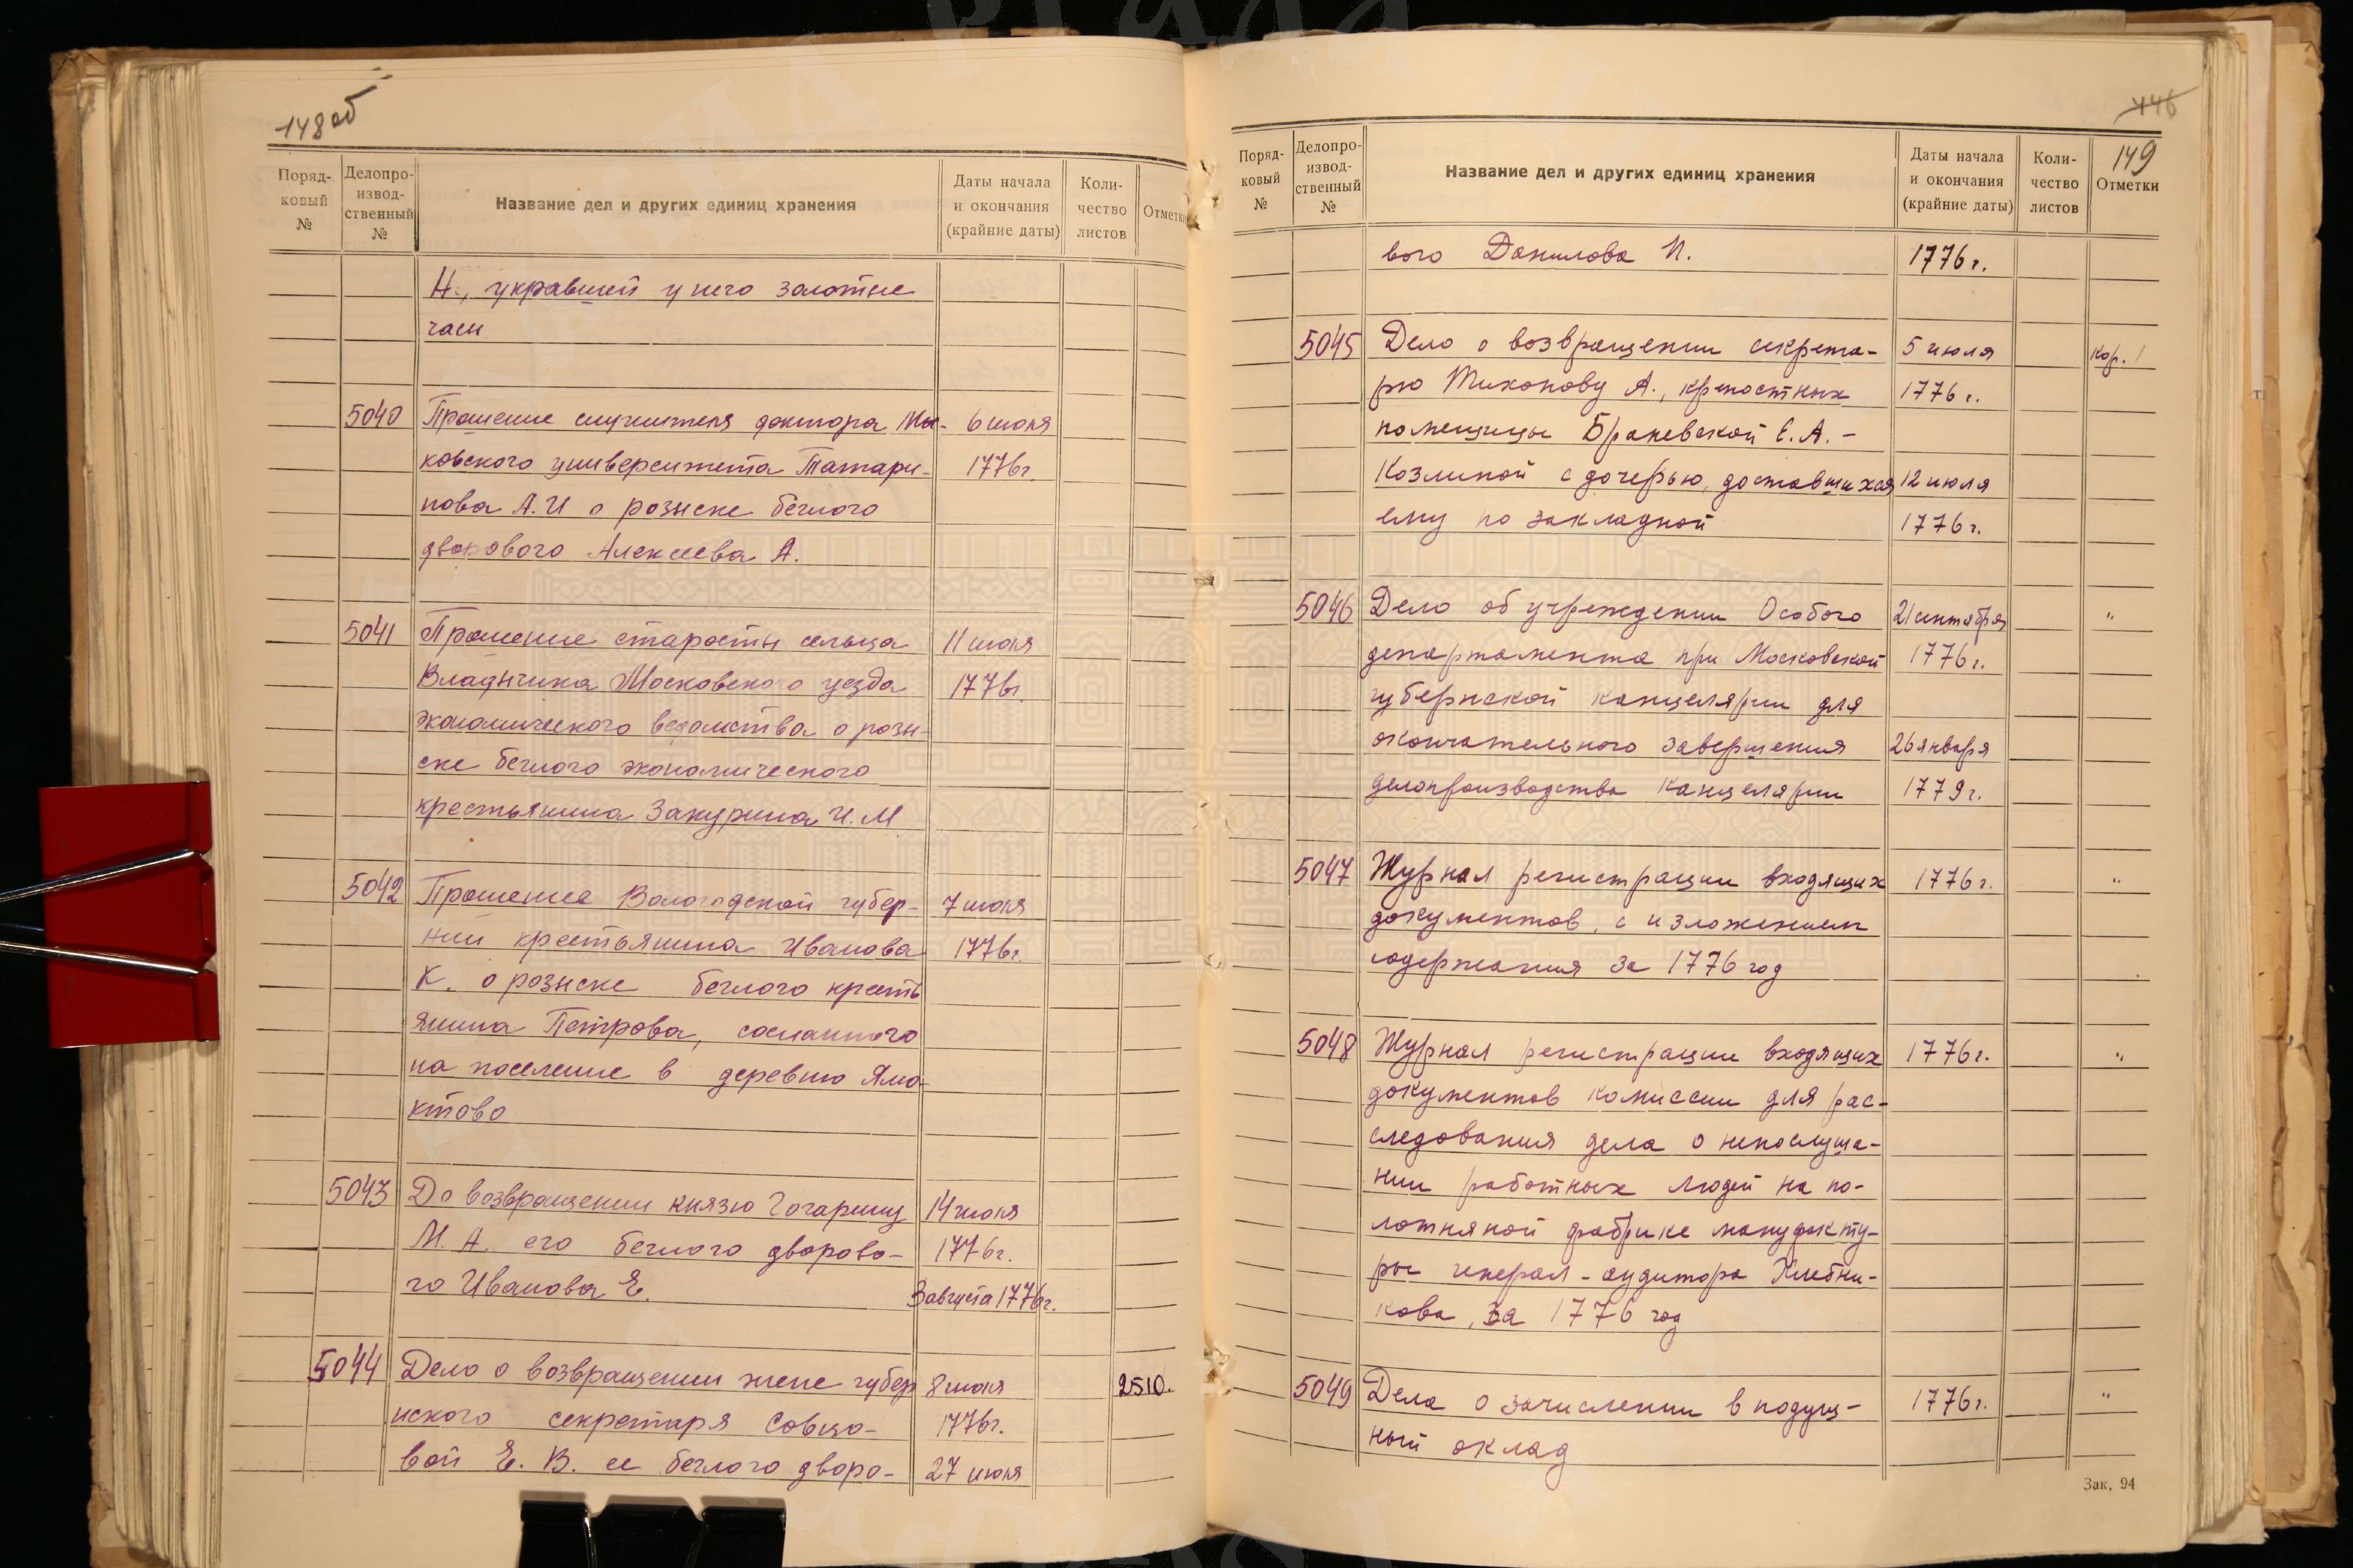 148 об
Поряд-
ковый
№
Делопро-
извод-
ственный
№
Название дел и других единиц хранения
Даты начала
и окончания
(крайние даты)
Коли-
чество
листов
Отметки
Н., укравшей у него золотые
часы
5040 Прошение служителя доктора Мос- 6 июля
ковского университета Татари- 1776г.
нова А.И о розыске беглого
дворового Алексеева А.
5041 Прошение старосты сельца 11 июля
Московского уезда 1776г.
экономического ведомства о розы-
ске беглого экономического
крестьянина Закурина И.М
5042 Прошение Вологодской губер- 7 июля
нии крестьянина Иванова 1776г.
К. о розыске беглого кресть
янина Петрова, сосланного
на поселение в деревню
ктово
5043 Д о возвращении князю Гагарину 14 июля
М. А. его беглого дворово- 1776г.
го Иванова Е. 3 августа 1776г.
5044 Дело о возвращении жене губер 8 июля 2510.
нского секретаря Совцо- 1776г.
вой Е. В. ее беглого дворо- 27 июля
146
149
Поряд-
ковый
№
Делопро-
извод-
ственный
№
Название дел и других единиц хранения
Даты начала
и окончания
(крайние даты)
Коли-
чество
листов
Отметки
вого Данилова И. 1776г.
5045 Дело о возвращении секрета- 5 июля кор. 1
рю Тихонову А., крепостных 1776г.
помещицы Браневской Е. А. -
Козлиной с дочерью, доставшихся 12 июля
ему по закладной 1776г.
5046 Дело об учреждении Особого 21 сентября "
департамента при Московской 1776г.
губернской канцелярии для
окончательного завершения 26 января
делопроизводства канцелярии 1779г.
5047 Журнал регистрации входящих 1776г. "
документов, с изложением
содержания за 1776 год
5048 Журнал регистрации входящих 1776г. "
документов комиссии для рас-
следования дела о непослуша-
нии работных людей на по-
лотняной фабрике мануфакту-
ры генерал-аудитора Хлебни-
кова, за 1776 год
5049 Дела о зачислении в подуш- 1776г. "
ный оклад
Зак, 94